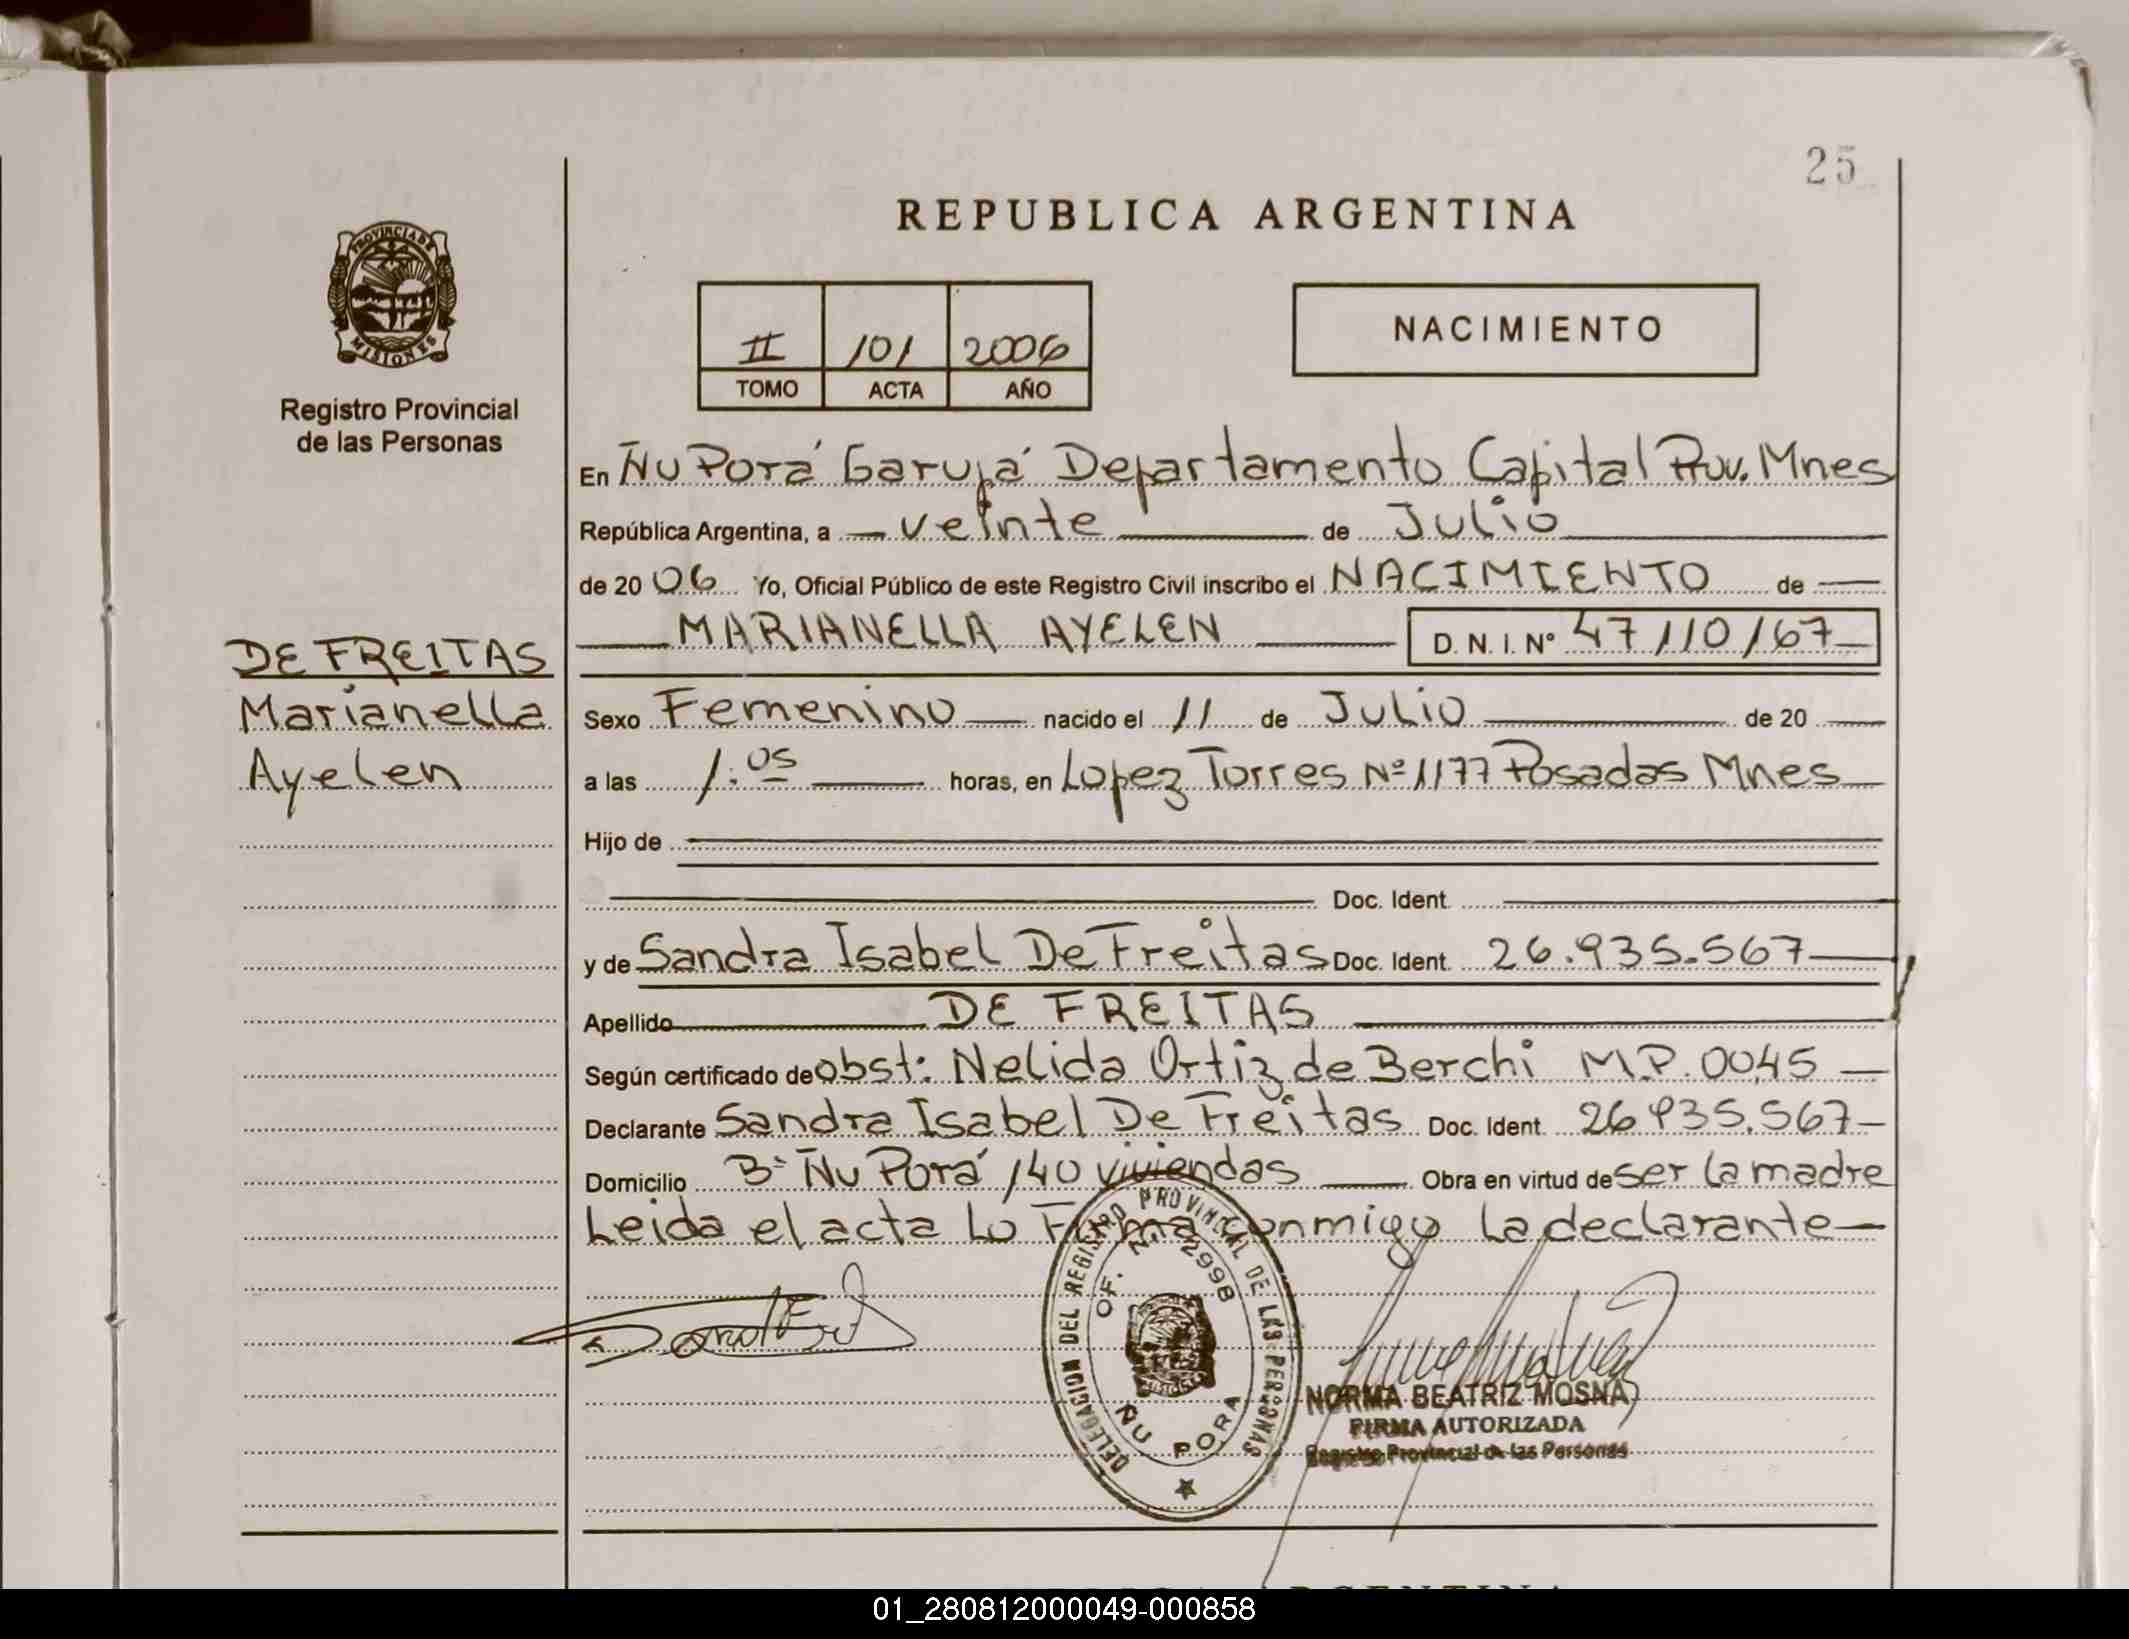 25
REPUBLICA ARGENTINA
PROVINCIA DE
MISIONES
Registro Provincial
de las Personas
II 101 2006
TOMO ACTA AÑO
NACIMIENTO
En Ñu Porá Garupá Departamento Capital Prov. Mnes
República Argentina, a veinte de Julio
de 20 06 Yo, Oficial Público de este Registro Civil inscribo el NACIMIENTO de
MARIANELLA AYELEN D. N. I. Nº 47110167
DE FREITAS
Marianella
Ayelen
Sexo Femenino nacido el 11 de Julio de 20
a las 1:05 horas, en Lopez Torres Nº 1177 Posadas Mnes
Hijo de
Doc. Ident.
y de Sandra Isabel De Freitas Doc. Ident. 26.935.567
Apellido DE FREITAS
Según certificado de obst: Nelida Ortiz de Berchi M.P. 0045
Declarante Sandra Isabel De Freitas Doc. Ident. 26 935.567
Domicilio Bº Ñu Porá 140 viviendas Obra en virtud de ser la madre
Leida el acta Lo Firma conmigo la declarante
DELEGACION DEL REGISTRO PROVINCIAL DE LAS PERSONAS
OF. 2998
ÑU PORA
NORMA BEATRIZ MOSNA
FIRMA AUTORIZADA
Registro Provincial de las Personas
01_280812000049-000858